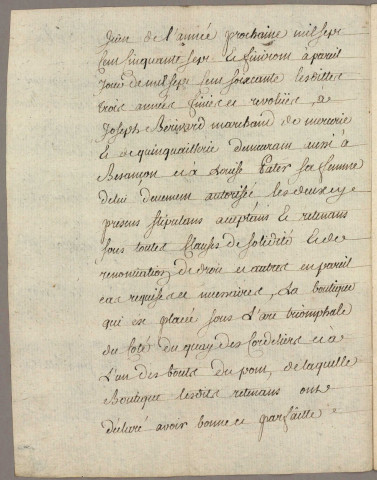 Juin de l'année prochaine mil sept
Cent Cinquante sept Et finiront a pareil
Jour de mil sept Cent soixante lesdittes
trois années finies et revoluës, à
Joseph Bernard marchand de mercerie
Et de quinquaillerie demeurant icy à
Besançon et à Louise Pater sa femme
de lui dêument autorisée les deux cy
presens stipulans aceptans Et retenans
sous toutes Clauses de solidité Et de
renonciation de droit et autres en pareil
cas requises et necessaires, La boutique
qui est placée sous L'arc triomphale
du Coté du quay des Cordeliers et à
L'un des bouts du pont, de laquelle
Boutique lesdits retenans ont
déclaré avoir bonne et parfaitte